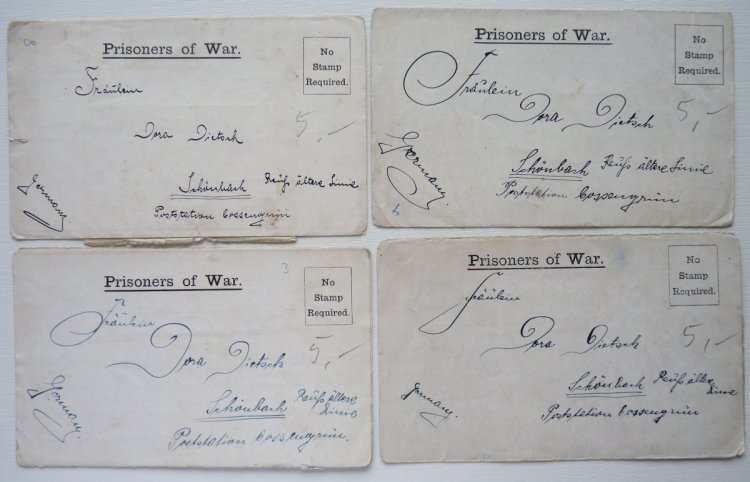 8
Prisoners of War.
No
Stamp
Required.
Fräulein
5,-
Dora Dietsch
Schönbach Reuß ältere Linie
Poststation Cossengrün
Germany
Prisoners of War.
No
Stamp
Required.
Fräulein
5,-
Dora Dietsch
Schönbach Reuß ältere Linie
Poststation Cossengrün
Germany.
Prisoners of War.
3
No
Stamp
Required.
Fräulein
5,-
Dora Dietsch
Schönbach Reuß ältere
Linie
Poststation Cossengrün.
Germany.
Prisoners of War.
No
Stamp
Required.
Fräulein
5,-
Dora Dietsch
Schönbach Reuß ältere
Linie
Poststation Cossengrün
Germany.